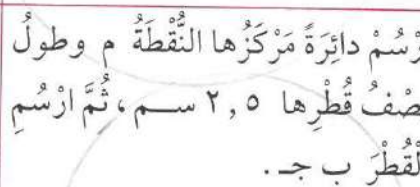 رْسُمْ دائِرَةً مَرْكَزُها النُّقْطَةُ م وطولُ
صْفُ قُطْرِها ٢,٥ ســم، ثُمَّ ارْسُمِ
لْقُطْرَ ب جـ.